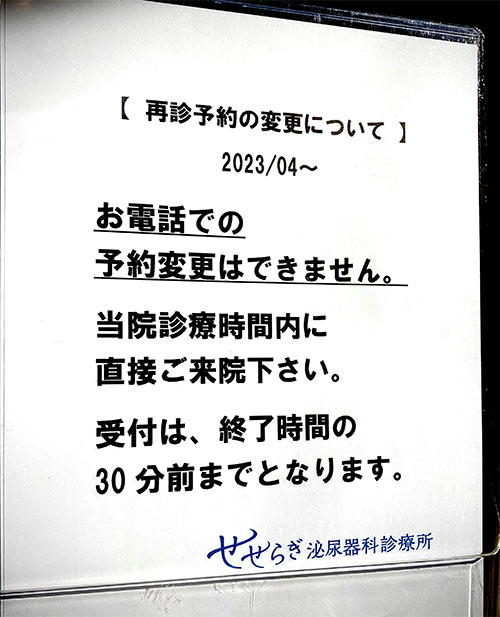 【 再診予約の変更について 】
2023/04～
お電話での
予約変更はできません。
当院診療時間内に
直接ご来院下さい。
受付は、終了時間の
30分前までとなります。
せせらぎ泌尿器科診療所